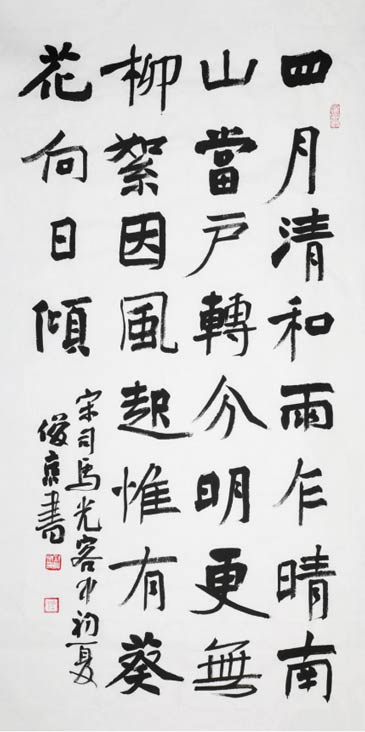 四月清和雨乍晴南
山當戶轉分明更無
柳絮因風起惟有葵
花向日傾
宋司馬光客中初夏
俊京書